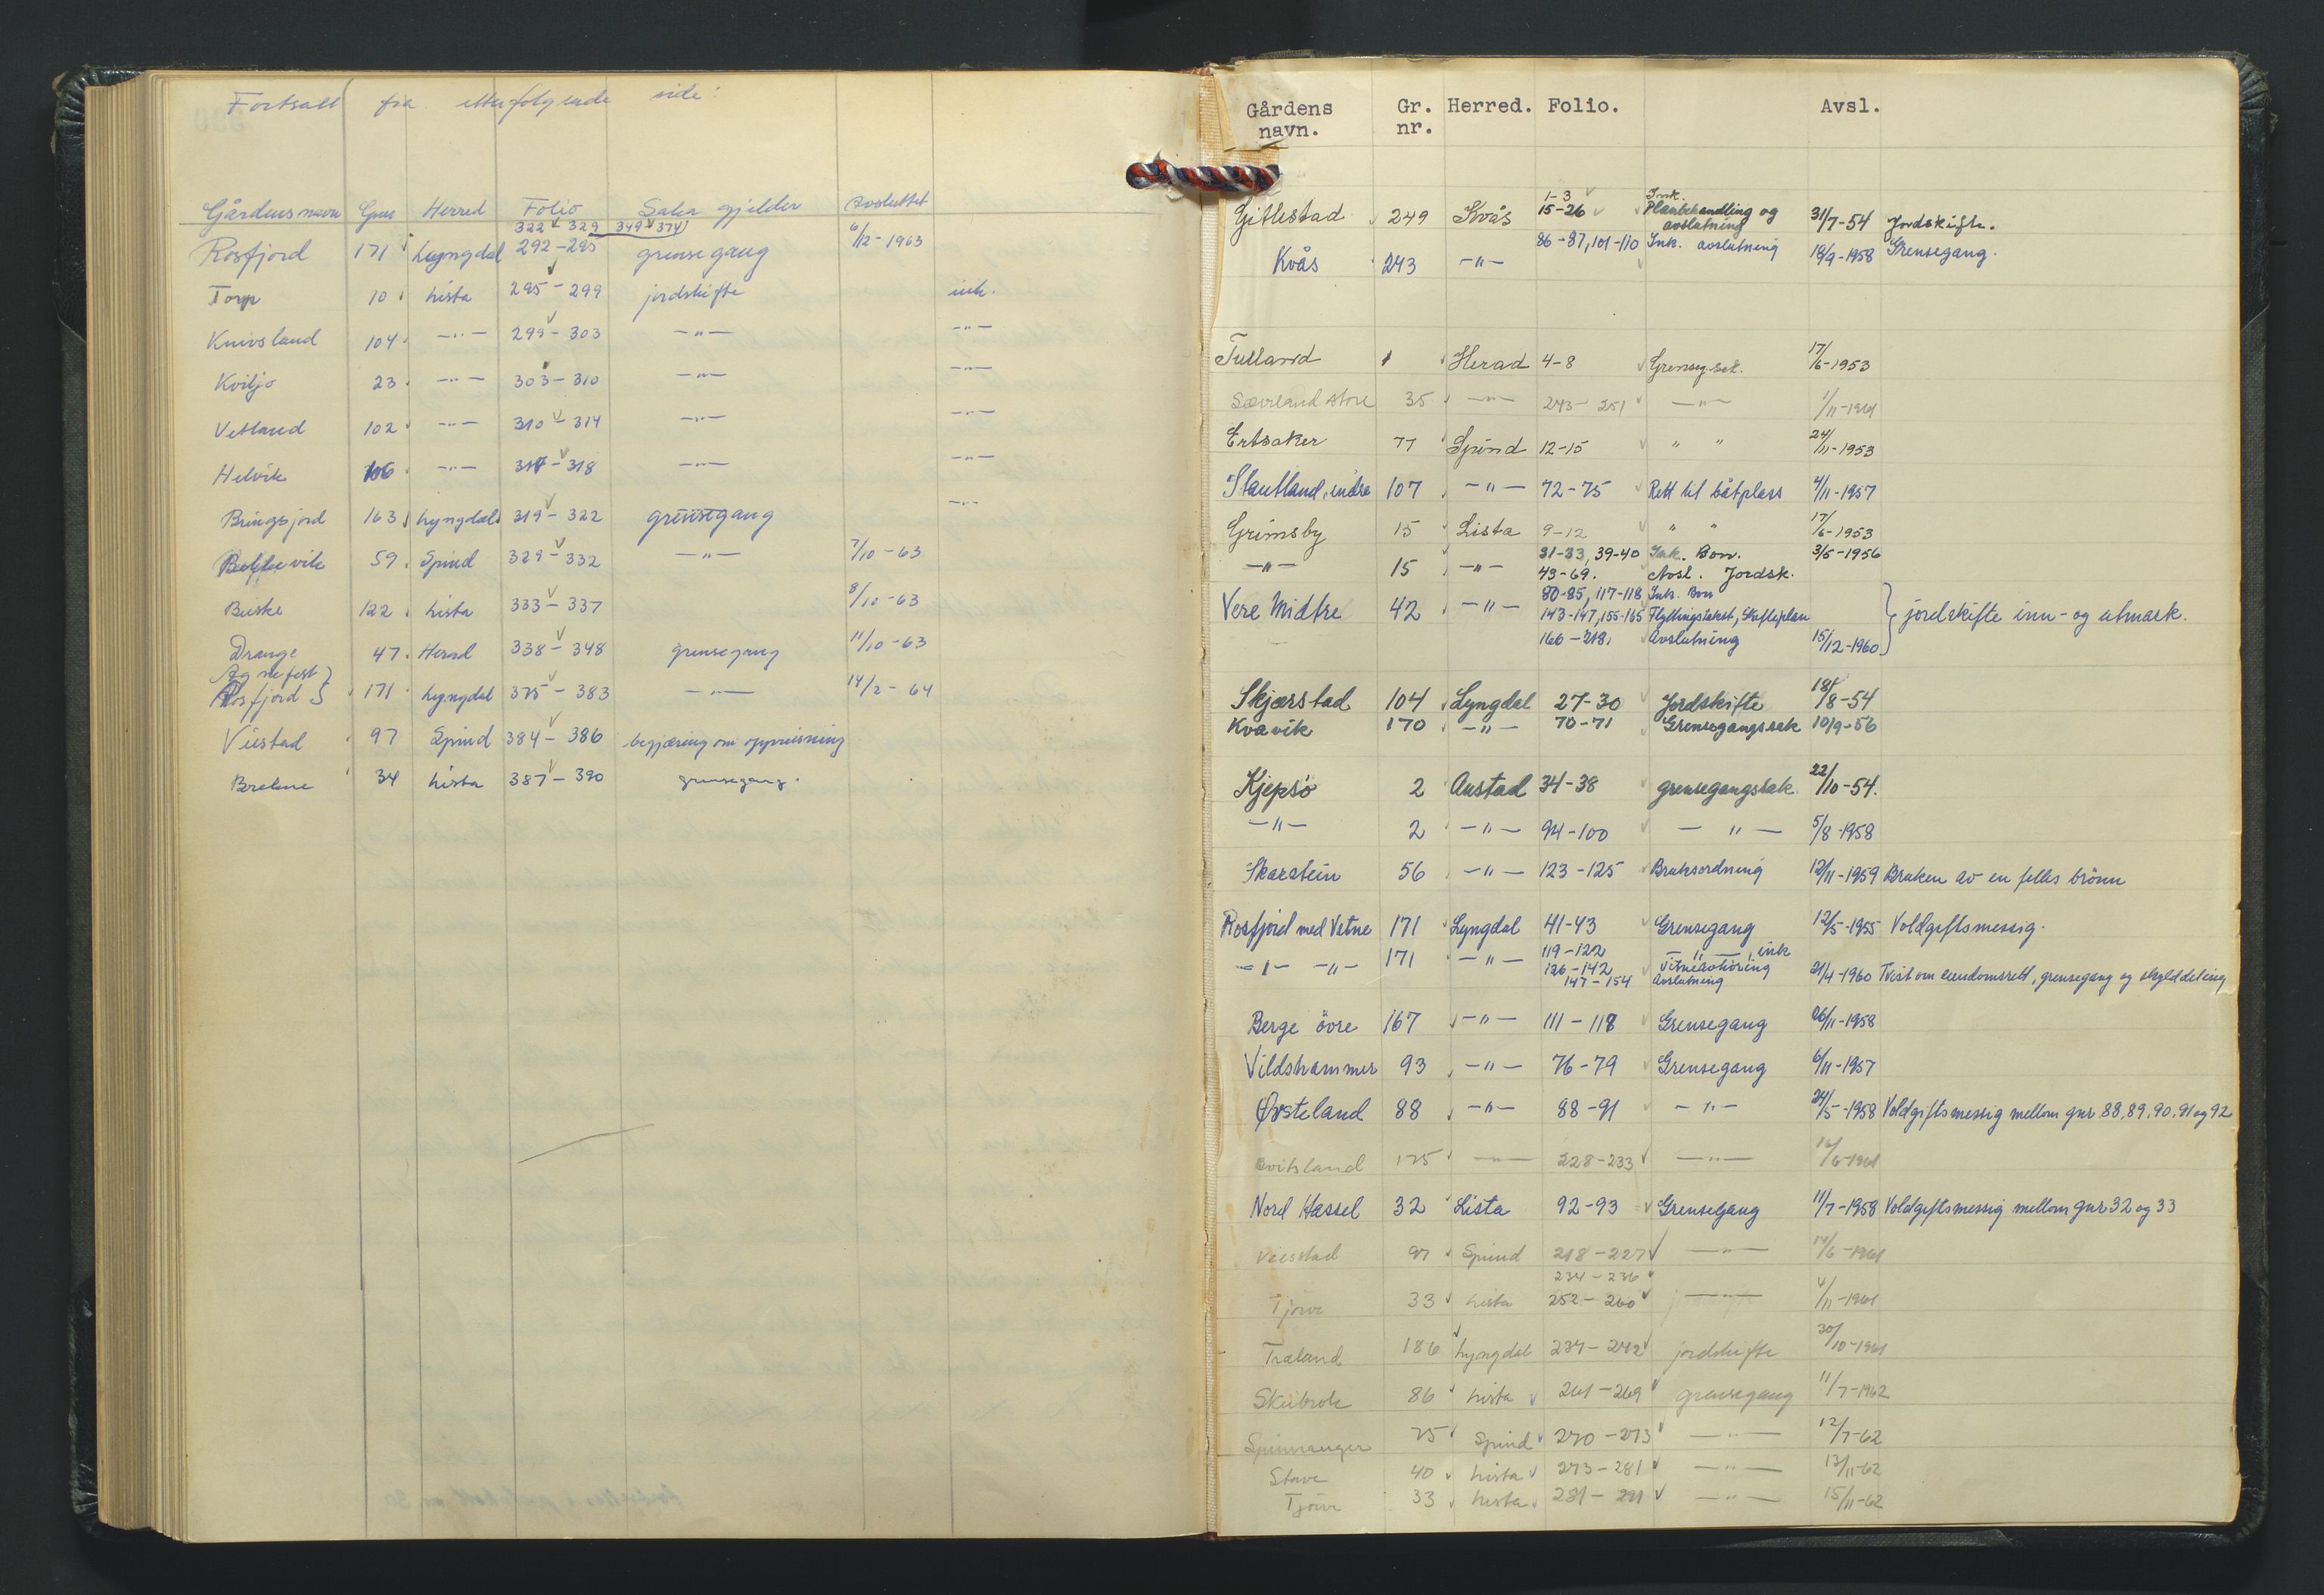 Fortsatt fra etterfølgende side:
Gårdens navn Gnr Herred Folio Saka gjelder avsluttet
322 - 329 349 - 374
Rosfjord 171 Lyngdal 292 - 295 grensegang 6/12 - 1963
Torp 10 Lista 295 - 299 jordskifte ink.
Knivsland 104 -"- 299 - 303 -"- -"-
Kviljo 23 -"- 303 - 310 -"- -"-
Vetland 102 -"- 310 - 314 -"- -"-
Helvik 106 -"- 314 - 318 -"- -"-
Bringsjord 163 Lyngdal 319 - 322 grensegang -"-
59 Spind 329 - 332 -"- 7/10 - 63
Beiske 122 Lista 333 - 337 8/10 - 63
Drange 47 Herad 338 - 348 grensegang 11/10 - 63
Agnefest }
Rosfjord } 171 Lyngdal 375 - 383 -"- 14/2 - 64
Viestad 97 Spind 384 - 386 begjæring om oppreisning
Brekne 34 Lista 387 - 390 grensegang.
Gårdens navn. Gr. nr. Herred. Folio. Avsl.
1-3 Ink.
Gitlestad 249 Kvås 15-26 Planbehandling og avslutning 31/7-54 Jordskifte.
Kvås 243 -"- 86-87, 101-110 Ink. avslutning 18/9-1958 Grensegang.
Tulland 1 Herad 4-8 Grenseg.sak. 17/6-1953
Sæveland store 35 -"- 243-251 -"- 1/11-1961
Ertsaker 77 Spind 12-15 " " 24/11-1953
Stautland, indre 107 -"- 72-75 Rett til båtplass 4/11-1957
Grimsby 15 Lista 9-12 " " 17/6-1953
-"- 15 -"- 31-33, 39-40 Ink. Bon. 3/5-1956
43-69. Avsl. Jordsk.
Vere Midtre 42 -"- 80-85, 117-118 Ink. Bon
143-147, 155-165 Flyttingstakst, Skifteplan } jordskifte inn- og utmark.
166-218. Avslutning 15/12-1960
Skjærstad 104 Lyngdal 27-30 Jordskifte 18/8-54
Kvavik 170 -"- 70-71 Grensegangssak 10/9-56
Kjepsö 2 Austad 34-38 grensegangssak 22/10-54.
-"- 2 -"- 94-100 -"- 5/8-1958
Skarstein 56 -"- 123-125 Bruksordning 12/11-1959 Bruken av en felles brönn
Rosfjord med Vatne 171 Lyngdal 41-43 Grensegang 12/5-1955 Voldgiftsmessig.
-"- -"- 171 -"- 119-122 -"-, ink
126-142 Vitneavhöring
147-154 Avslutning 21/4-1960 Tvist om eiendomsrett, grensegang og skylddeling
Berge övre 167 -"- 111-118 Grensegang 26/11-1958
Vildshammer 93 -"- 76-79 Grensegang 6/11-1957
Øvsteland 88 -"- 88-91 -"- 24/5-1958 Voldgiftsmessig mellom gnr 88, 89, 90, 91 og 92
175 -"- 228-233 -"- 16/6-1961
Nord Hassel 32 Lista 92-93 Grensegang 11/7-1958 Voldgiftsmessig mellom gnr 32 og 33
Veisstad 97 Spind 218-227 -"- 14/6-1961
234-236
Tjörve 33 Lista 252-260 -"- 4/11-1961
Træland 186 Lyngdal 237-242 jordskifte 30/10-1961
Skeibrok 86 Lista 261-269 grensegang 11/7-1962
Spinnanger 75 Spind 270-273 -"- 12/7-62
Stave 40 Lista 273-281 -"- 13/11-62
Tjörve 33 Lista 281-291 -"- 15/11-62